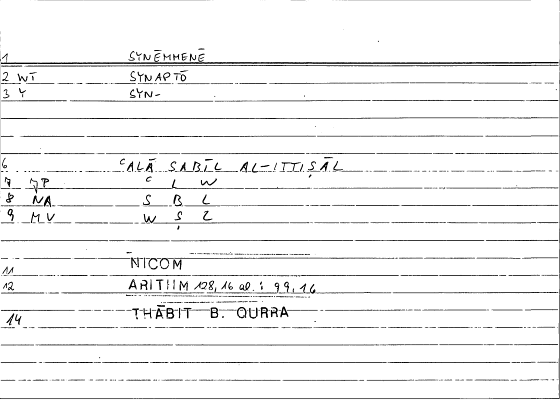 1 SYNĒMMENĒ
2 WT SYNAPTŌ
3 Y SYN-
6 ʿALĀ SABĪL AL-ITTIṢĀL
7 JP ʿ L W
8 NA S B L
9 MV W Ṣ L
11 NICOM
12 ARITHM 128,16 al. : 99,16
14 THĀBIT B. QURRA